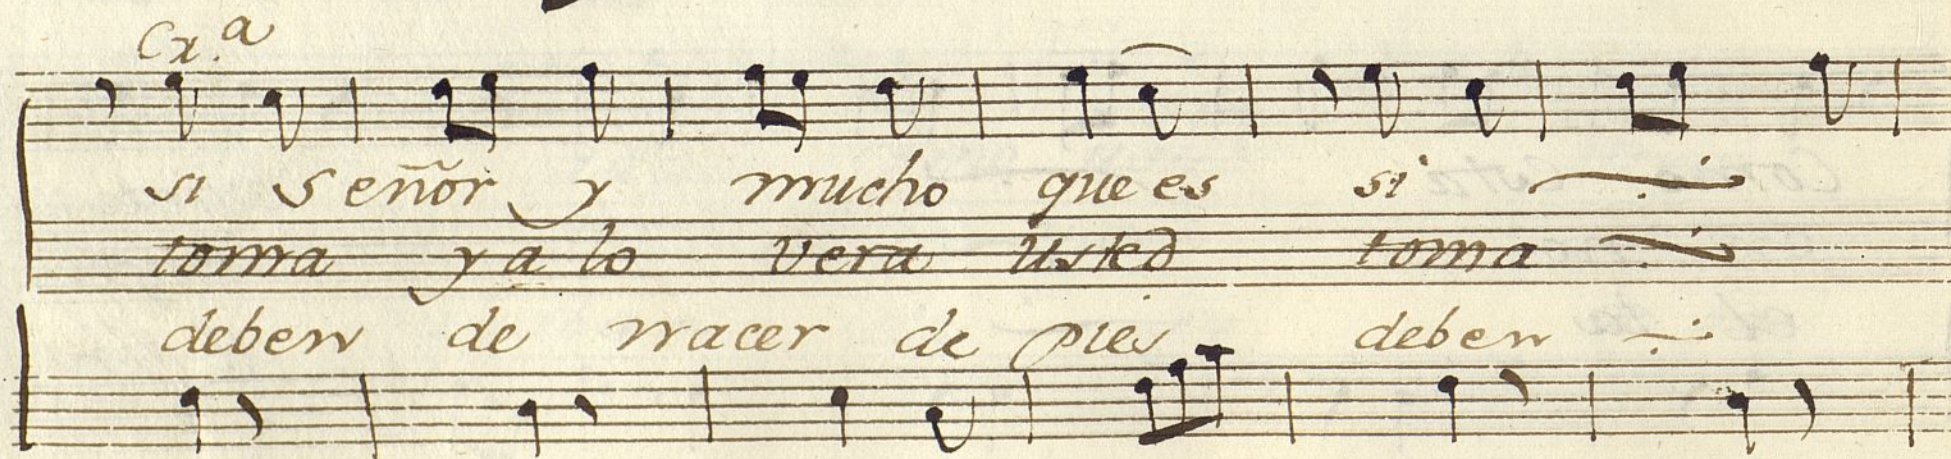 Cx.ª
si Señor y mucho que es si
toma ya lo vera Usted toma
deben de nacer de pies deben